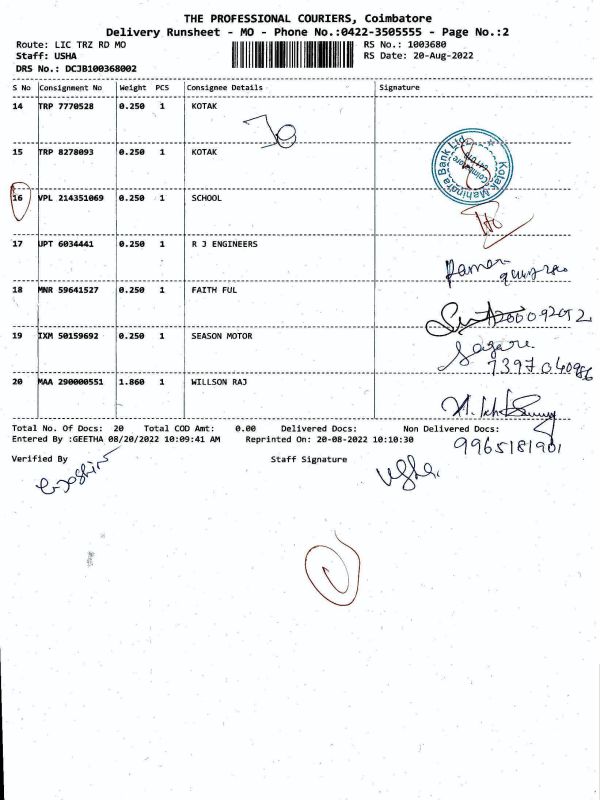 THE PROFESSIONAL COURIERS, Coimbatore
Delivery Runsheet - MO - Phone No.:0422-3505555 - Page No.:2
Route: LIC TRZ RD MO RS No.: 1003680
Staff: USHA RS Date: 20-Aug-2022
DRS No.: DCJB100368002
S No Consignment No Weight PCS Consignee Details Signature
14 TRP 7770528 0.250 1 KOTAK
15 TRP 8278093 0.250 1 KOTAK
Kotak Mahindra Bank Ltd.
Coimbatore
16 VPL 214351069 0.250 1 SCHOOL
17 UPT 6034441 0.250 1 R J ENGINEERS
18 MNR 59641527 0.250 1 FAITH FUL
19 IXM 50159692 0.250 1 SEASON MOTOR
20 MAA 290000551 1.860 1 WILLSON RAJ
Total No. Of Docs: 20 Total COD Amt: 0.00 Delivered Docs: Non Delivered Docs:
Entered By :GEETHA 08/20/2022 10:09:41 AM Reprinted On: 20-08-2022 10:10:30
9965181901
Verified By Staff Signature
Usha